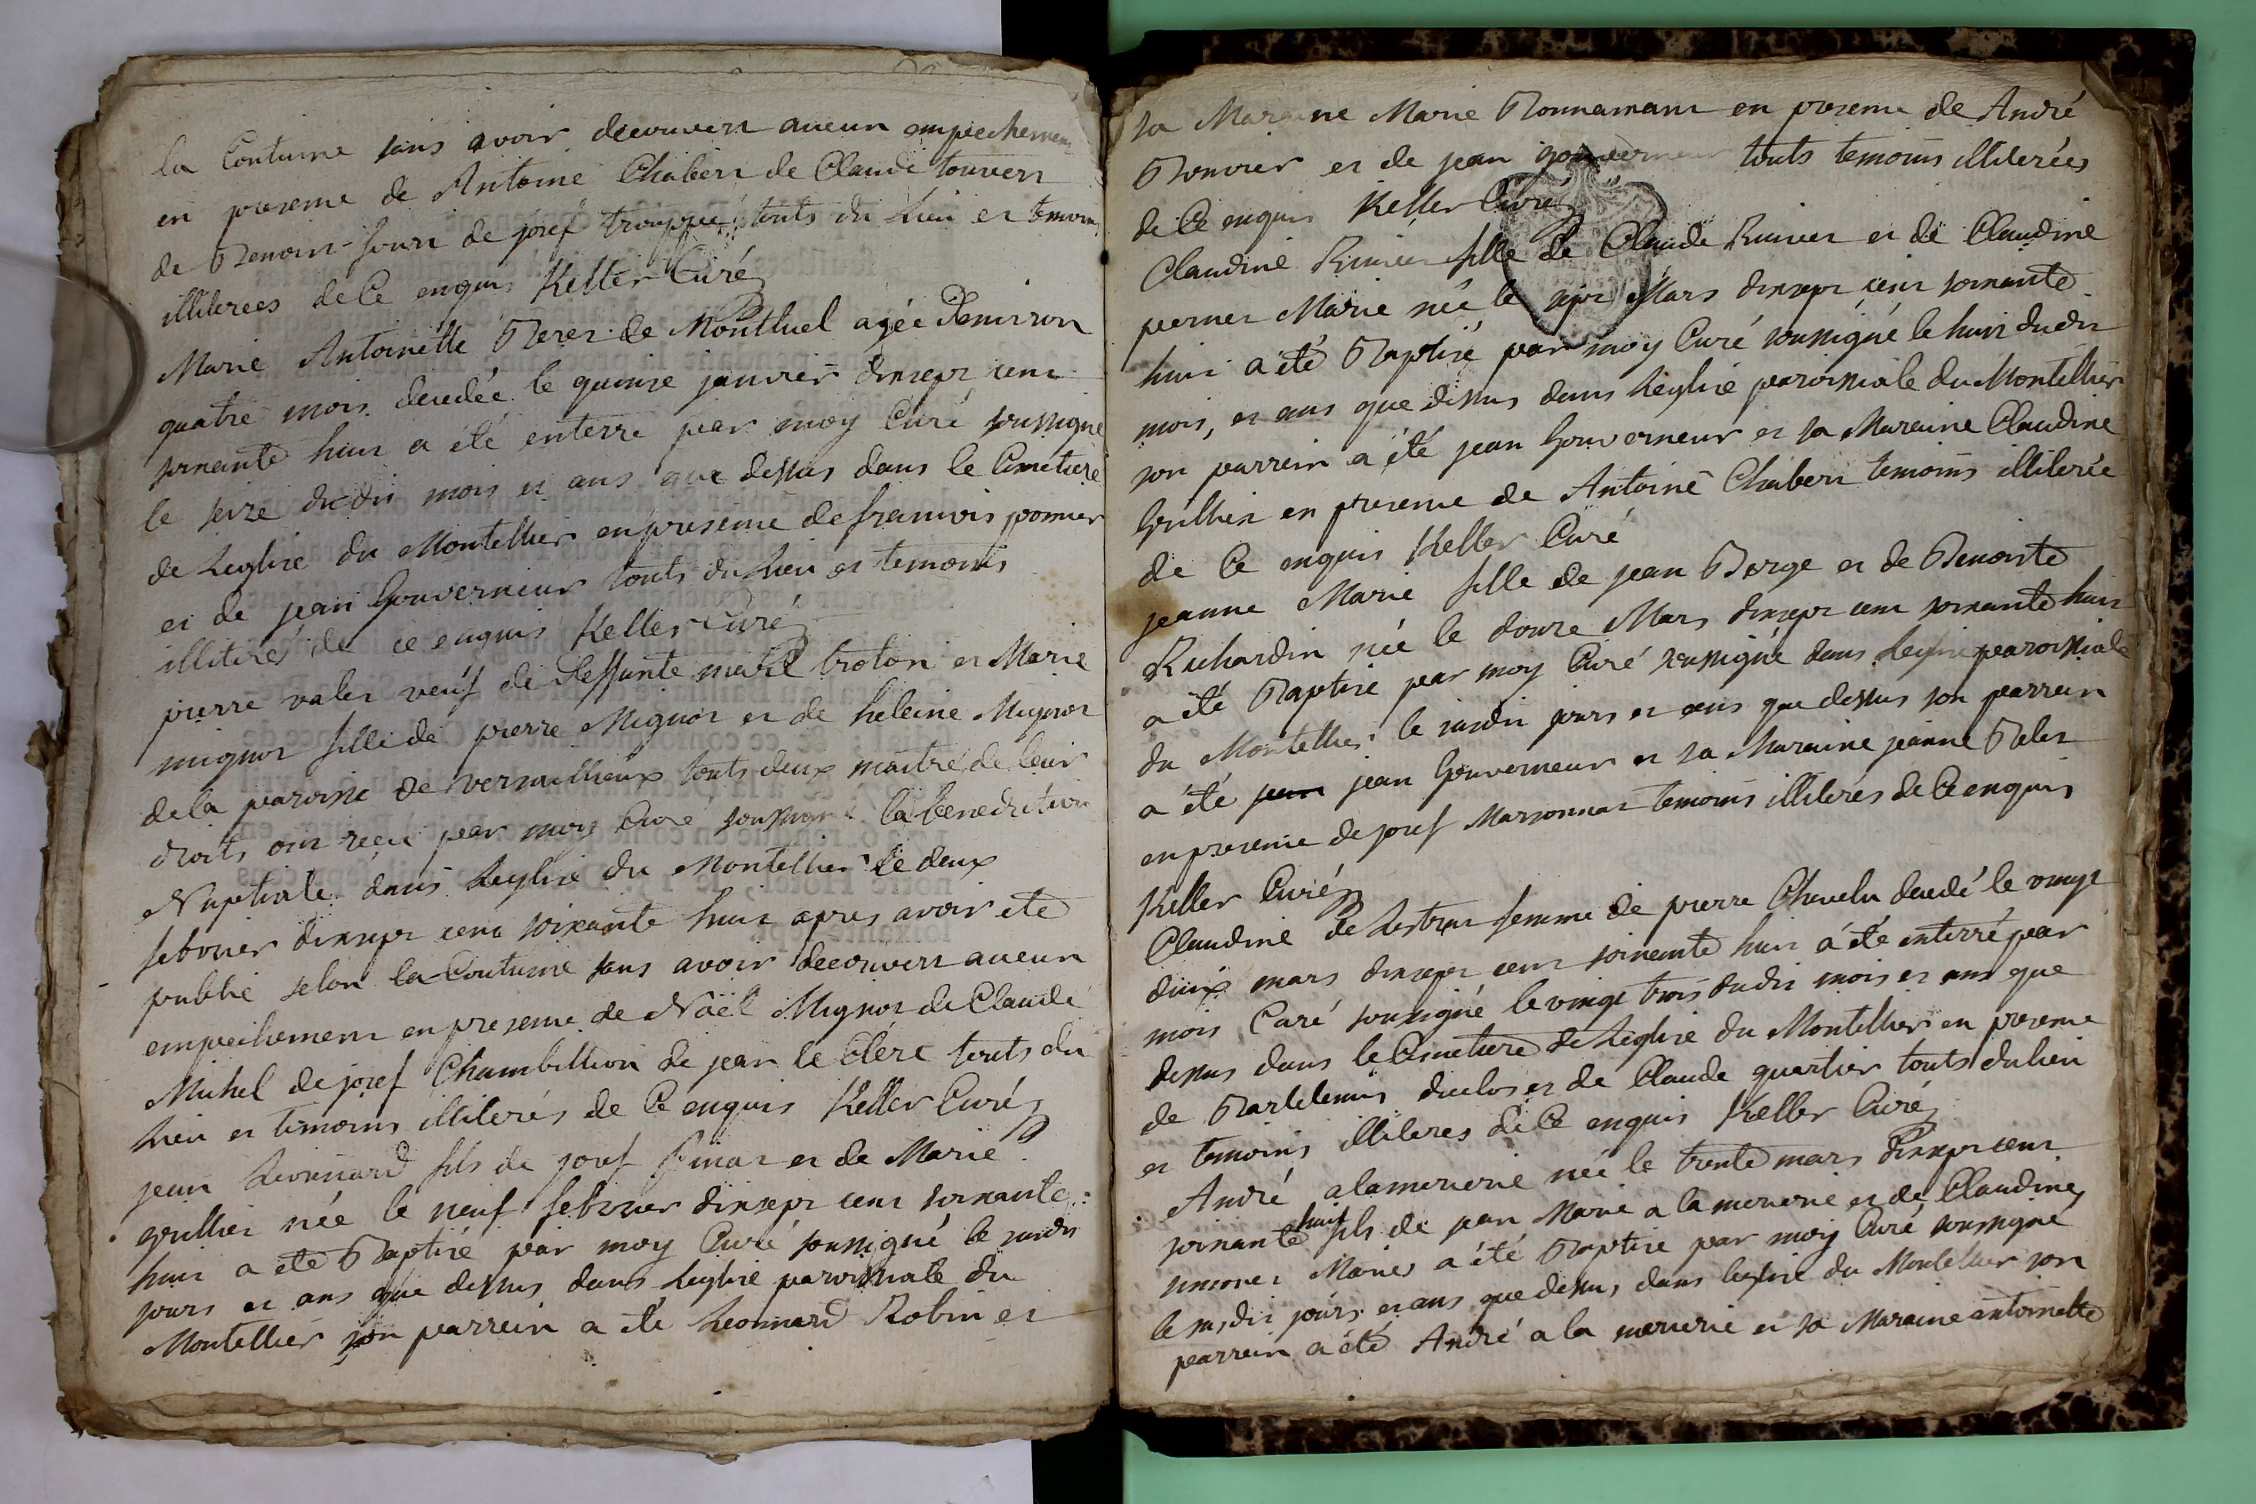 la Coutume sans avoir decouvert aucun empechement
en presence de Antoine Chabert de Claude touvert
de Benoit de josef troupper touts du Lieu et temoins
illiterees de Ce enquis Keller Curé
Marie Antoinette Beret de Montluel agée denviron
quatre mois decedée le quinze janvier dixsept cent
soixante huit a été enterre par moy Curé soussigné
le seize dudit mois et ans que dessus dans le Cimetiere
de Leglise du Montellier en presence de francois pomier
et de jean Gouverneur touts du Lieu et temoins
illiteres de ce enquis Keller Curé
pierre valet veuf de deffunte marie troton et Marie
mignot fille de pierre Mignot et de heleine Mignot
de la paroisse de versailleux touts deux maitre de leur
droits ont recu par moy Curé soussigné la benediction
Nuptiale dans Leglise du Montellier le deux
febvrier dixsept cent soixante huit apres avoir ete
publié selon la Coutume sans avoir decouvert aucun
empechement en presence de Noël Mignot de Claude
Michel de josef Chambillion de jean le Clerc touts du
Lieu et temoins illiterés de Ce enquis Keller Curé
jean Leonnard fils de josef et de Marie
grillier née le neuf febvrier dixsept cent soixante
huit a ete Baptisé par moy Curé soussigné le susdit
jours et ans que dessus dans Leglise paroissiale du
Montellier son parrein a été Leonnard Robin et
sa Maraine Marie Bonnamant en presence de André
Bouvier et de jean gouverneur touts temoins illiterées
de Ce enquis Keller Curé
Claudine Runier fille de Claude Runier et de Claudine
pernet Marié née le sept Mars dixsept cent soixante
huit a été Baptisé par moy Curé soussigné le huit dudit
mois, et ans que dessus dans Leglise paroissiale du Montellier
son parrein a été jean Gouverneur et sa Maraine Claudine
Grillier en presence de Antoine Chabert temoins illiterée
de Ce enquis Keller Curé
jeanne Marie fille de jean Berge et de Benoite
Richardin née le douze Mars dixsept cent soixante huit
a été Baptisé par moy Curé soussigné dans Leglise paroissiale
du Montellier le susdit jours et ans que dessus son parrein
a été jean jean Gouverneur et sa Maraine jeanne Belet
en presence de josef Marsonnat temoins illiterés de Ce enquis
Keller Curé
Claudine de Lestrat femme de pierre Chevelu decedé le vingt
deux mars dixsept cent soixante huit a été enterré par
mois Curé soussigné le vingt trois dudit mois et ans que
dessus dans le Cimetiere de Leglise du Montellier en presence
de Bartelemis duclos et de Claude quartier touts du lieu
et temoins illiteres de Ce enquis Keller Curé
André alamercerie née le trente mars dixsept cent
soixante huit fils de jean Marie a la mercerie et de Claudine
simonet Mariés a été Baptisé par moy Curé soussigné
le susdit jours et ans que dessus dans leglise du Montellier son
parrein a été André a la mercerie et sa Maraine antoinette